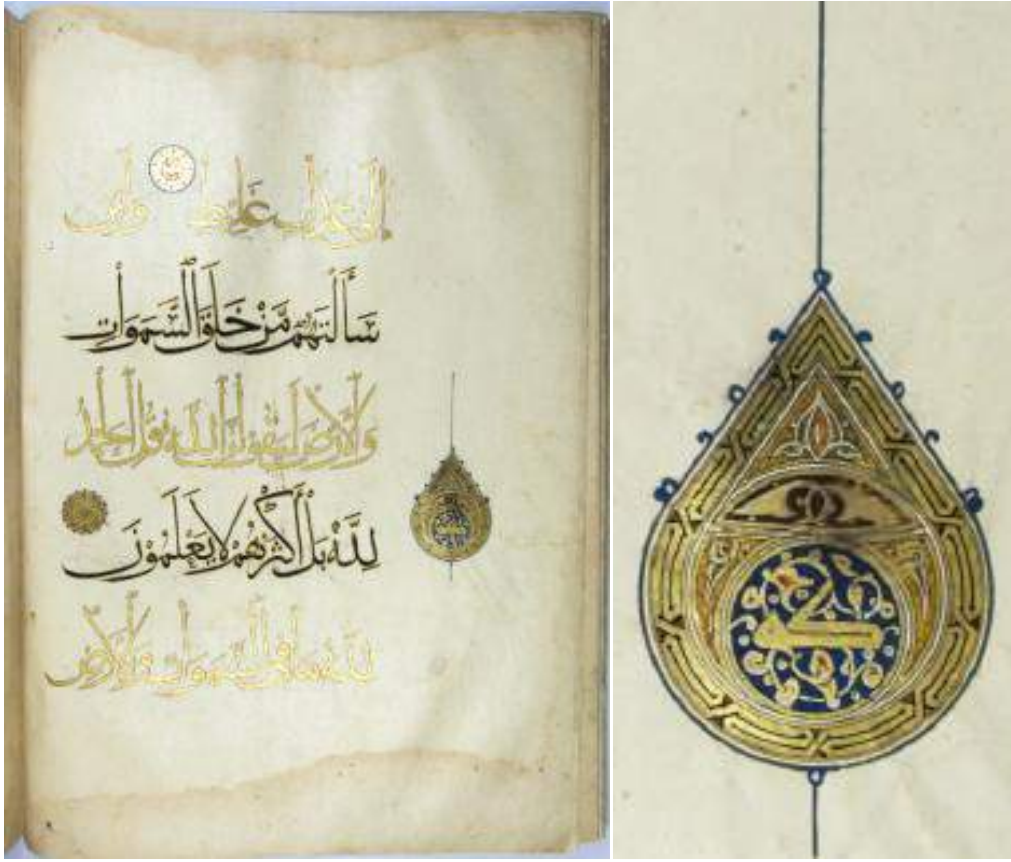 إلى عذاب غليظ ولئن
سَأَلْتَهُمْ مَّنْ خَلَقَ السَّمَوَاتِ
والأرض ليقولن الله قل الحمد
لِلَّهِ بَلْ أَكْثَرُهُمْ لَا يَعْلَمُونَ
لله ما في السموات والأرض